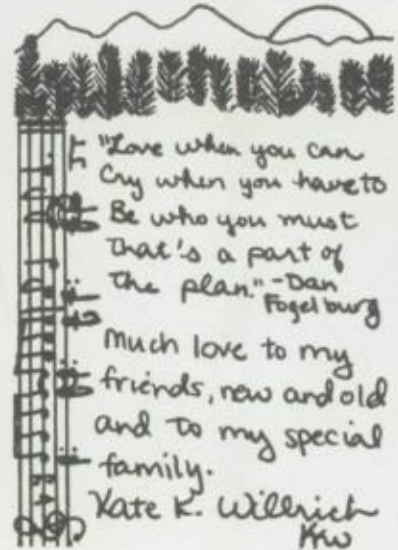 "Love when you can
Cry when you have to
Be who you must
That's a part of
the plan." -Dan
Fogelburg
Much love to my
friends, new and old
and to my special
family.
Kate K. Willrich
KW